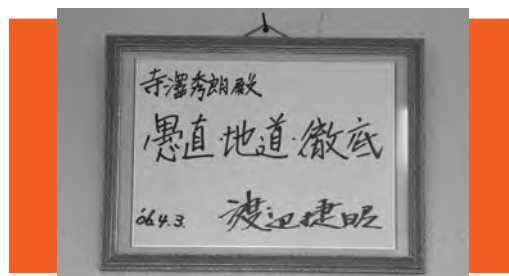 寺澤秀朗殿
愚直・地道・徹底
'06.4.3. 渡辺捷昭